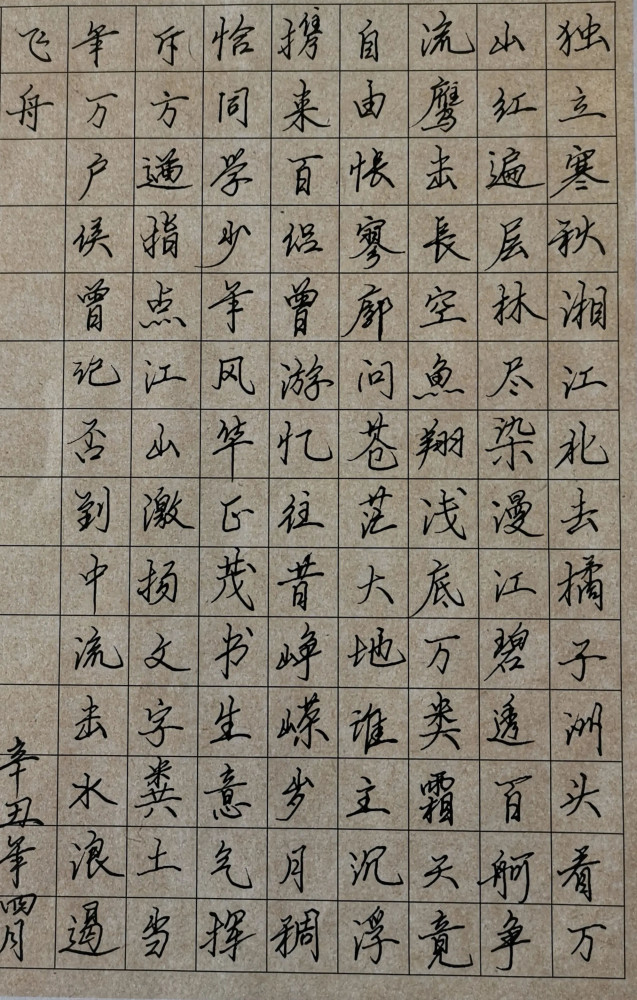 独立寒秋湘江北去橘子洲头看万
山红遍层林尽染漫江碧透百舸争
流鹰击長空魚翔浅底万类霜天竟
自由怅寥廓问苍茫大地谁主沉浮
携来百侣曾游忆往昔峥嵘岁月稠
恰同学少年风华正茂书生意气挥
斥方遒指点江山激扬文字粪土当
年万户侯曾记否到中流击水浪遏
飞舟
辛丑年四月